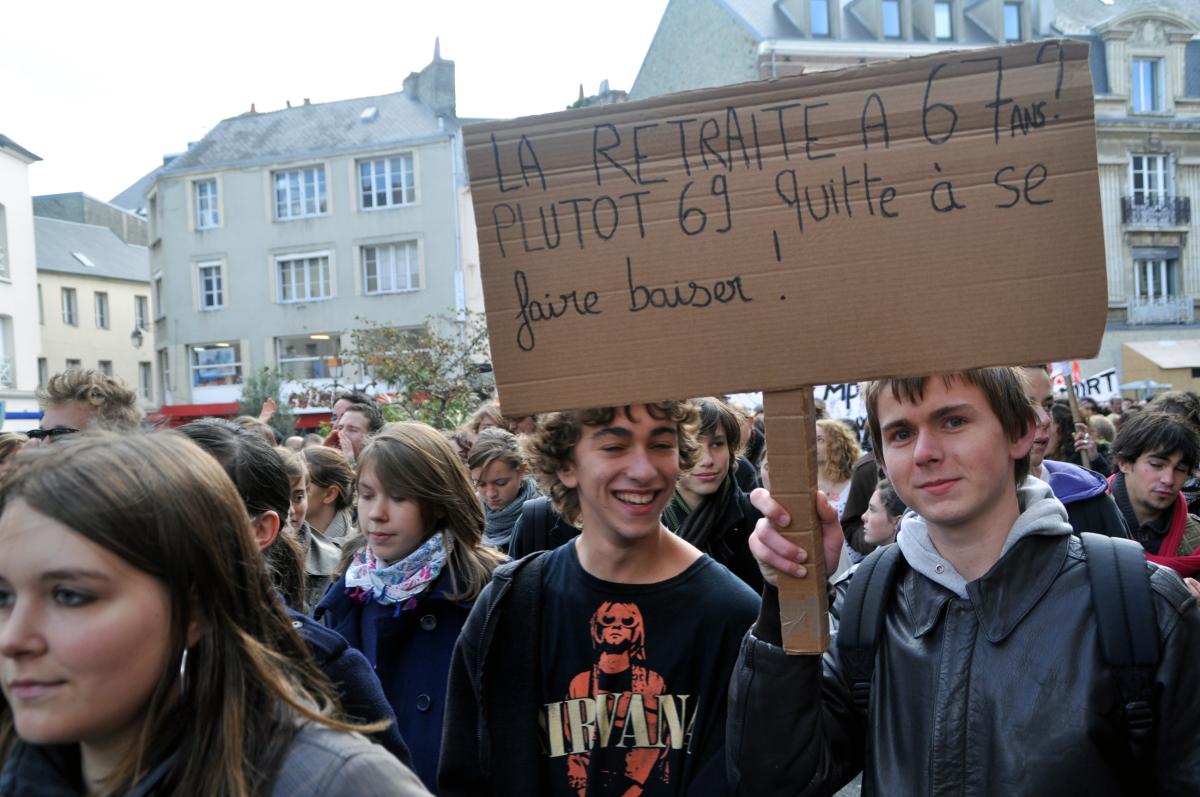 LA RETRAITE A 67 ANS?
PLUTOT 69, quitte à se
faire baiser !
NIRVANA